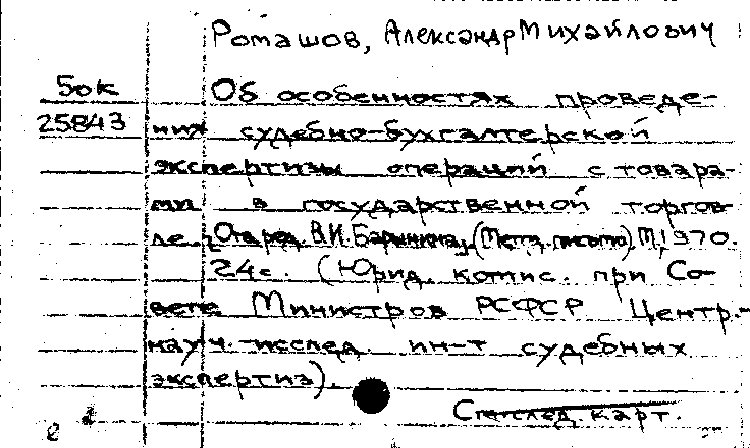 Ромашов, Александр Михайлович
Бок Об особенностях проведе-
25843 ния судебно-бухгалтерской
экспертизы операций с товара-
ми в государственной торгов-
ле. Отв. ред. В.И. (Метод. письмо) М., 1970.
24с. (Юрид. комис. при Со-
вете Министров РСФСР Центр.-
науч.-исслед. ин-т судебных
экспертиз).
См. след. карт.